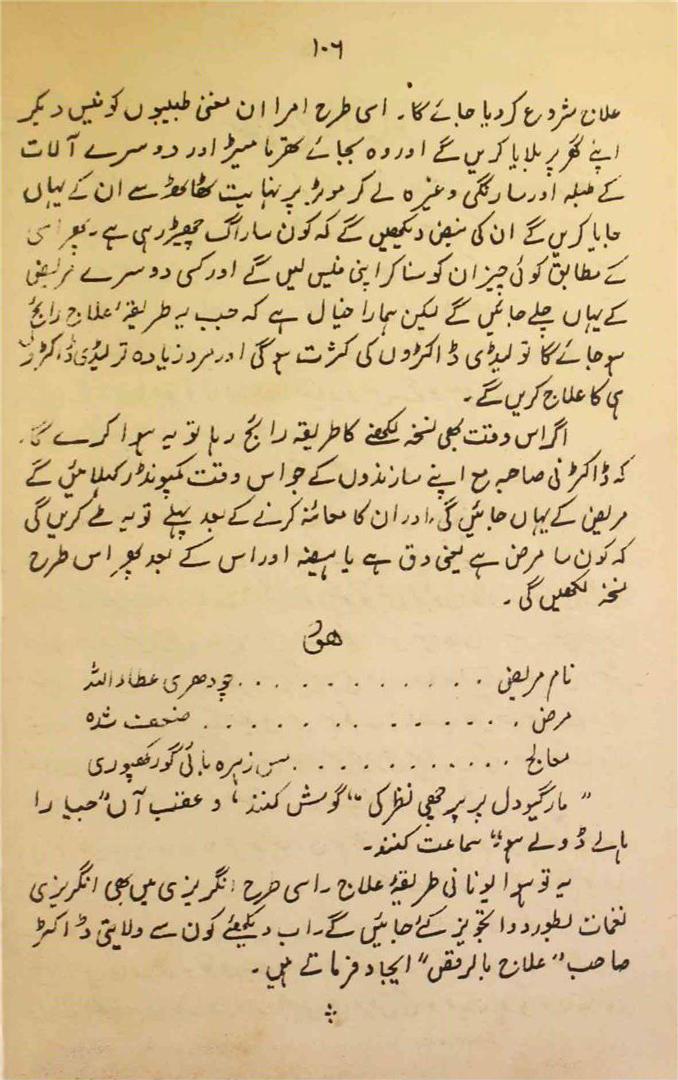 ۱۰۶
علاج شروع کردیا جائے گا۔ اسی طرح امرا ان مغنی طبیبوں کو فیس دیکر
اپنے گھر پر بلایا کریں گے اور وہ بجائے تھرمامیٹر اور دوسرے آلات
کے طبلہ اور سارنگی وغیرہ لے کر موٹر پر نہایت ٹھاٹھ سے ان کے یہاں
جایا کریں گے ان کی نبض دیکھیں گے کہ کون سا راگ چھیڑ رہی ہے۔ پھر اسی
کے مطابق کوئی چیز ان کو سنا کر اپنی فیس لیں گے اور کسی دوسرے مریض
کے یہاں چلے جائیں گے لیکن ہمارا خیال ہے کہ جب یہ طریقۂ علاج رائج
ہو جائے گا تو لیڈی ڈاکٹروں کی کثرت ہوگی اور مرد زیادہ تر لیڈی ڈاکٹروں
ہی کا علاج کریں گے۔
اگر اس وقت بھی نسخہ لکھنے کا طریقہ رائج رہا تو یہ ہوا کرے گا۔
کہ ڈاکٹرنی صاحبہ مع اپنے سازندوں کے جو اس وقت کمپونڈر کہلائیں گے
مریض کے یہاں جائیں گی، اور ان کا معائنہ کرنے کے بعد پہلے تو یہ طے کریں گی
کہ کون سا مرض ہے یعنی دق ہے یا ہیضہ اور اس کے بعد پھر اس طرح
نسخہ لکھیں گی۔
ھو
نام مریض . . . . . . . . . . . چودھری عطاء اللہ
مرض . . . . . . . . . . . ضعف شدہ
معالج . . . . . . . . . . . مس زہرہ بائی گورکھپوری
"مار گیو دل پر برچھی نظر کی" "گوش کنند" و عقب آں "حبیا را
ہالے ڈولے ہو" سماعت کنند۔
یہ تو ہوا یونانی طریقۂ علاج۔ اسی طرح انگریزی میں بھی انگریزی
نغمات بطور دوا تجویز کئے جائیں گے۔ اب دیکھئے کون سے ولایتی ڈاکٹر
صاحب "علاج بالرقص" ایجاد فرماتے ہیں۔